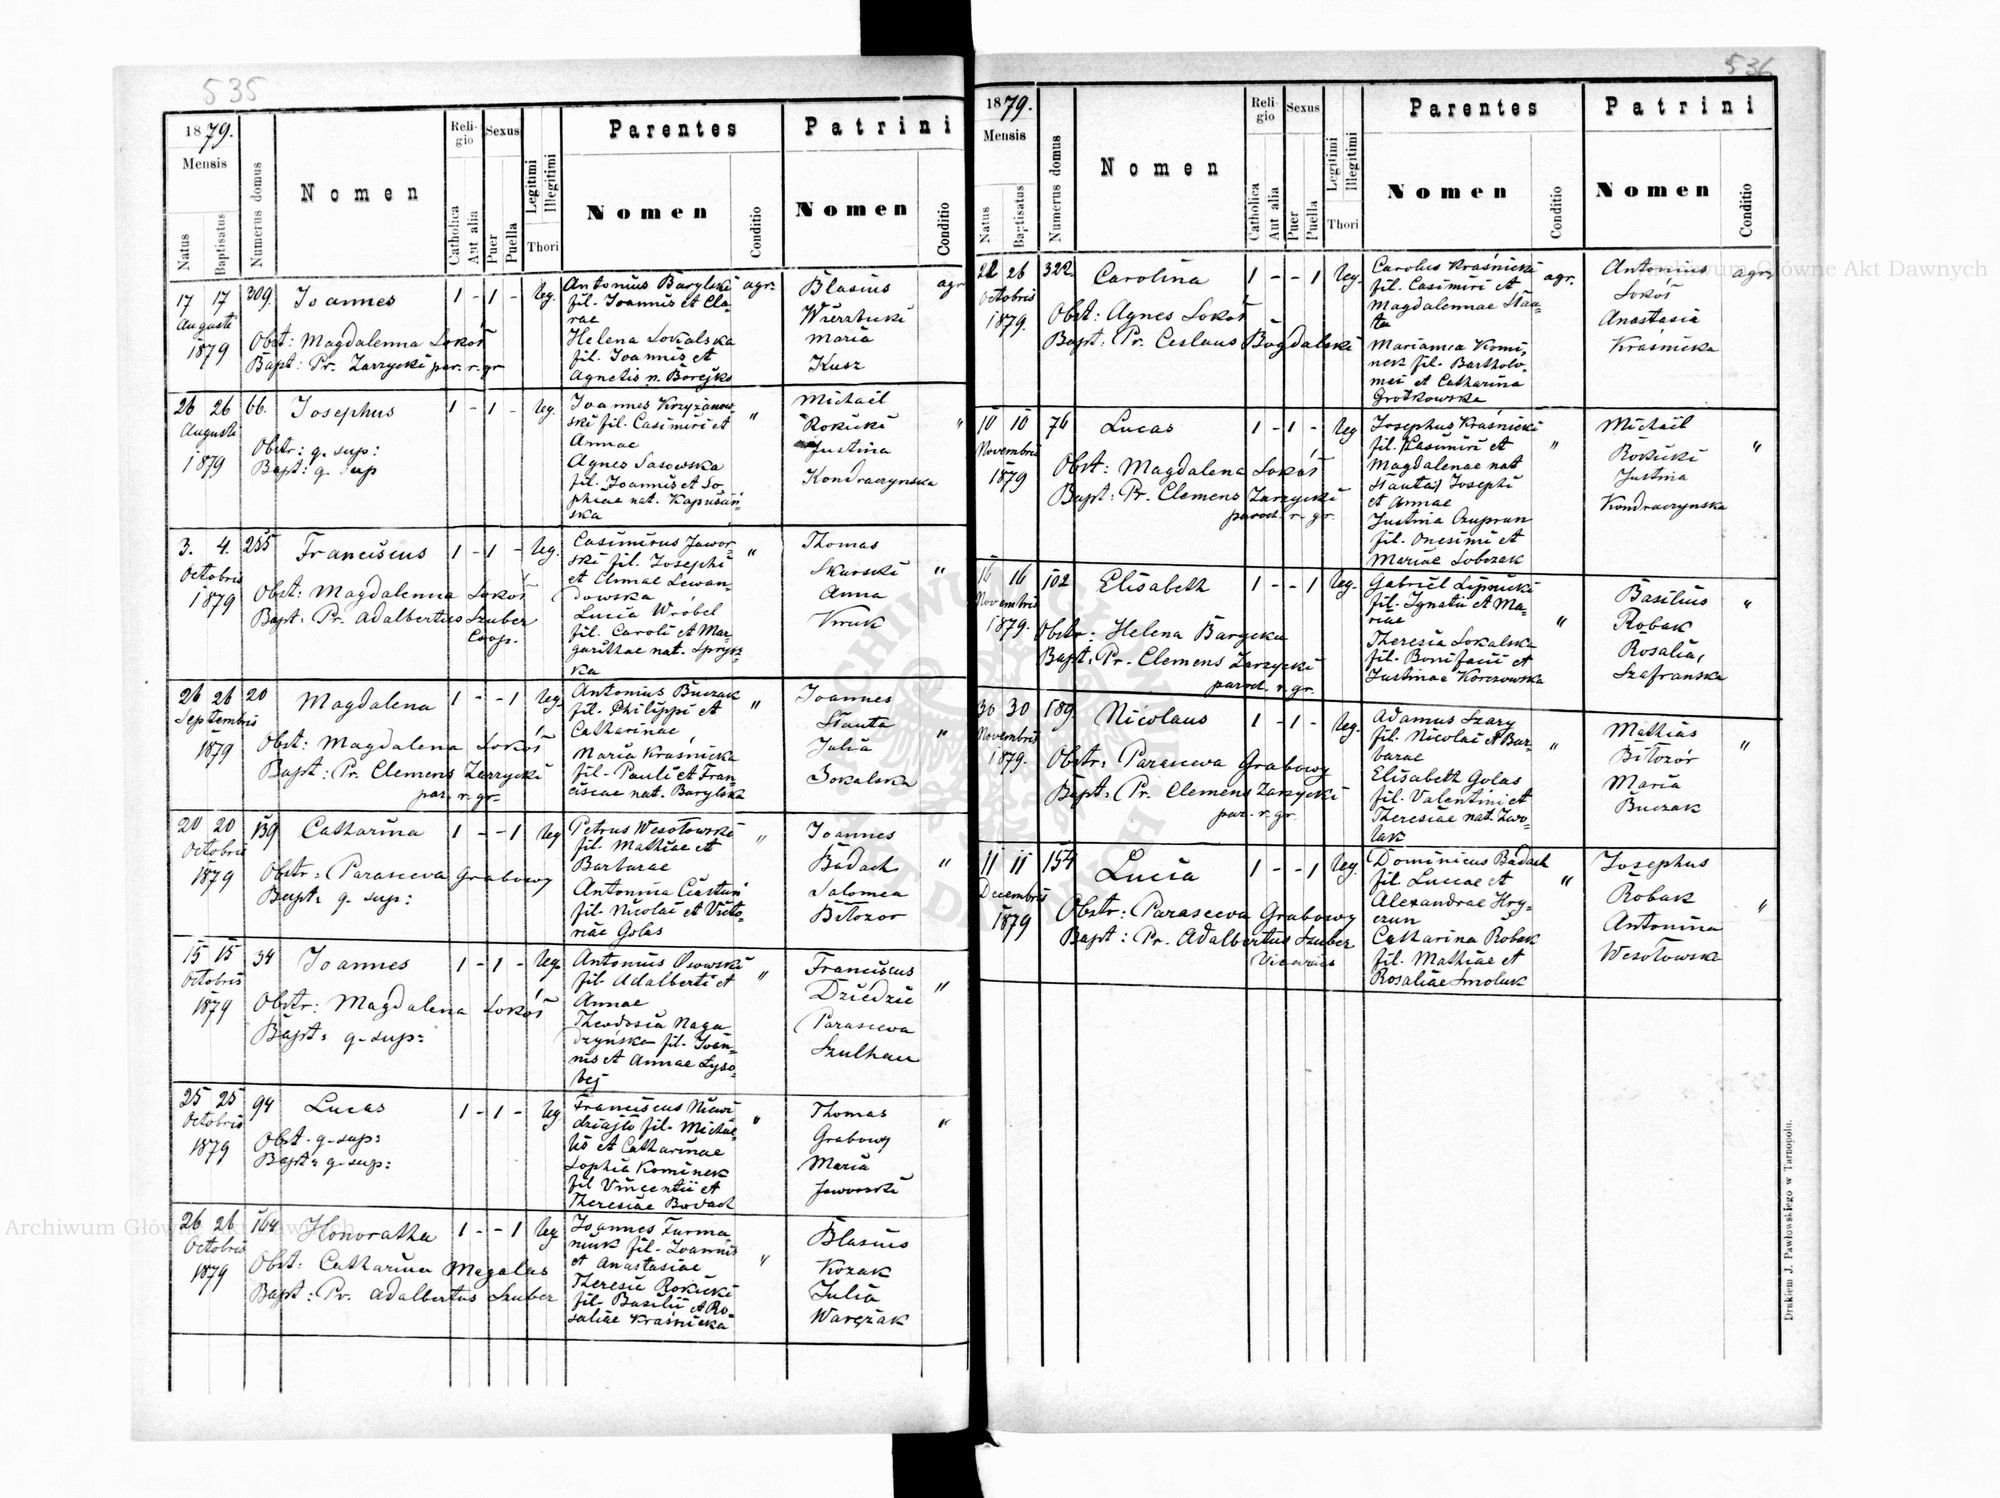 535
1879.
Mensis
Natus
Baptisatus
Numerus domus
Nomen
Religio
Catholica
Aut alia
Sexus
Puer
Puella
Legitimi
Illegitimi
Thori
Parentes
Nomen
Conditio
Patrini
Nomen
Conditio
17 17 309. Joannes 1 - 1 - leg.
Augusti
1879
Obst: Magdalenna Sokoś
Bapt: Pr. Zarzycki par. r. gr
Antonius Barylski agr.
fil. Joannis et Cla-
rae
Helena Sokalska
fil. Joannis et
Agnetis n. Borejko
Blasius agr
Wierzbicki
Maria
Kusz
26 26 66. Josephus 1 - 1 - leg.
Augusti
1879
Obstr: q. sup:
Bapt: q. sup
Joannes Krzyżanow- "
ski fil. Casimiri et
Annae
Agnes Sasowska
fil. Joannis et So-
phiae nat. Kapuściń-
ska
Michaël "
Rokicki
Justina
Kondraczynska
3. 4. 255 Franciscus 1 - 1 - leg.
Octobris
1879
Obst: Magdalenna Sokoś
Bapt: Pr. Adalbertus Szuber
Coop.
Casimirus Jawor- "
ski fil. Josephi
et Annae Lewan-
dowska
Lucia Wróbel
fil. Caroli et Mar-
garithae nat. Sprysz-
ka
Thomas
Skurski "
Anna
Kruk
26 26 20 Magdalena 1 - - 1 leg.
Septembris
1879
Obst: Magdalena Sokoś
Bapt: Pr. Clemens Zarzycki
par. r. gr.
Antonius Buczak "
fil. Philippi et
Catharinae
Maria Kraśnicka
fil. Pauli et Fran-
ciscae nat. Barylska
Joannes
Słauta "
Julia
Sokalska
20 20 139 Catharina 1 - - 1 leg
Octobris
1879
Obstr: Parasceva Grabowy
Bapt: q. sup:
Petrus Wesołowski "
fil. Mathiae et
Barbarae
Antonina Ciastuń
fil. Nicolai et Victo-
riae Golas
Joannes
Badach "
Salomea
Biłozor
15 15 34 Joannes 1 - 1 - leg.
Octobris
1879
Obstr: Magdalena Sokoś
Bapt: q. sup:
Antonius Osowski "
fil. Adalberti et
Annae
Theodosia Naga
dzyńska fil. Joan-
nis et Annae Łyso-
bej
Franciscus
Dziedzic "
Parasceva
Szulhan
25 25 94 Lucas 1 - 1 - leg
Octobris
1879
Obst. q. sup:
Bapt: q. sup:
Franciscus Niewi "
dziajło fil. Michae-
lis et Catharinae
Sophia Kominek
fil Vincentii et
Theresiae Badach
Thomas "
Grabowy
Maria
Jaworski
26 26 164 Honoratha 1 - - 1 leg
Octobris
1879
Obst: Catharina Magalas
Bapt: Pr. Adalbertus Szuber
Joannes Furma "
niuk fil. Joannis
et Anastasiae
Theresia Rokicki
fil. Basilii et Ro-
saliae Kraśnicka
Blasius
Kozak
Julia
Warczak
536
1879.
Mensis
Natus
Baptisatus
Numerus domus
Nomen
Religio
Catholica
Aut alia
Sexus
Puer
Puella
Legitimi
Illegitimi
Thori
Parentes
Nomen
Conditio
Patrini
Nomen
Conditio
22 26 322 Carolina 1 - - 1 leg.
Octobris
1879.
Obst: Agnes Sokoś
Bapt: Pr. Ceslaus Bogdalski
Carolus Kraśnicki agr.
fil. Casimiri et
Magdalennae Słau-
ta
Marianna Komi-
nek fil. Bartholo-
mei et Catharina
Grotkowska
Antonius agr.
Sokoś
Anastasia
Kraśnicka
10 10 76 Lucas 1 - 1 - leg
Novembris
1879
Obst: Magdalena Sokoś
Bapt: Pr. Clemens Zarzycki
paroch. r. gr.
Josephus Kraśnicki "
fil. Casimiri et
Magdalenae nat
Słauta) Josephi
et Annae
Justina Czuprun
fil. Onesimi et
Mariae Sobczak
Michaël "
Rokicki
Justina
Kondraczynska
16 16 102 Elisabeth 1 - - 1 leg.
Novembris
1879.
Obstr: Helena Barycka
Bapt: Pr. Clemens Zarzycki
paroch. r. gr.
Gabriel Lipnicki "
fil. Ignatii et Ma-
riae
Theresia Sokalska
fil. Bonifacii et
Justinae Korczowska
Basilius "
Robak
Rosalia
Szafranska
30 30 189. Nicolaus 1 - 1 - leg.
Novembris
1879.
Obstr: Parasceva Grabowy
Bapt: Pr. Clemens Zarzycki
par. r. gr.
Adamus Szary "
fil. Nicolai et Bar-
barae
Elisabeth Golas
fil. Valentini et
Theresiae nat. Zwo-
lak
Mathias "
Biłozór
Maria
Buczak
11 11 154 Lucia 1 - - 1 leg.
Decembris
1879
Obstr: Parasceva Grabowy
Bapt: Pr. Adalbertus Szuber
Vicarius
Dominicus Badach "
fil. Lucae et
Alexandrae Hry-
czun
Catharina Robak
fil. Mathiae et
Rosaliae Smoluk
Josephus
Robak "
Antonina
Wesołowska
Drukiem J. Pawłowskiego w Tarnopolu.
Archiwum Główne Akt Dawnych
Archiwum Główne Akt Dawnych
ARCHIWUM GŁÓWNE AKT DAWNYCH